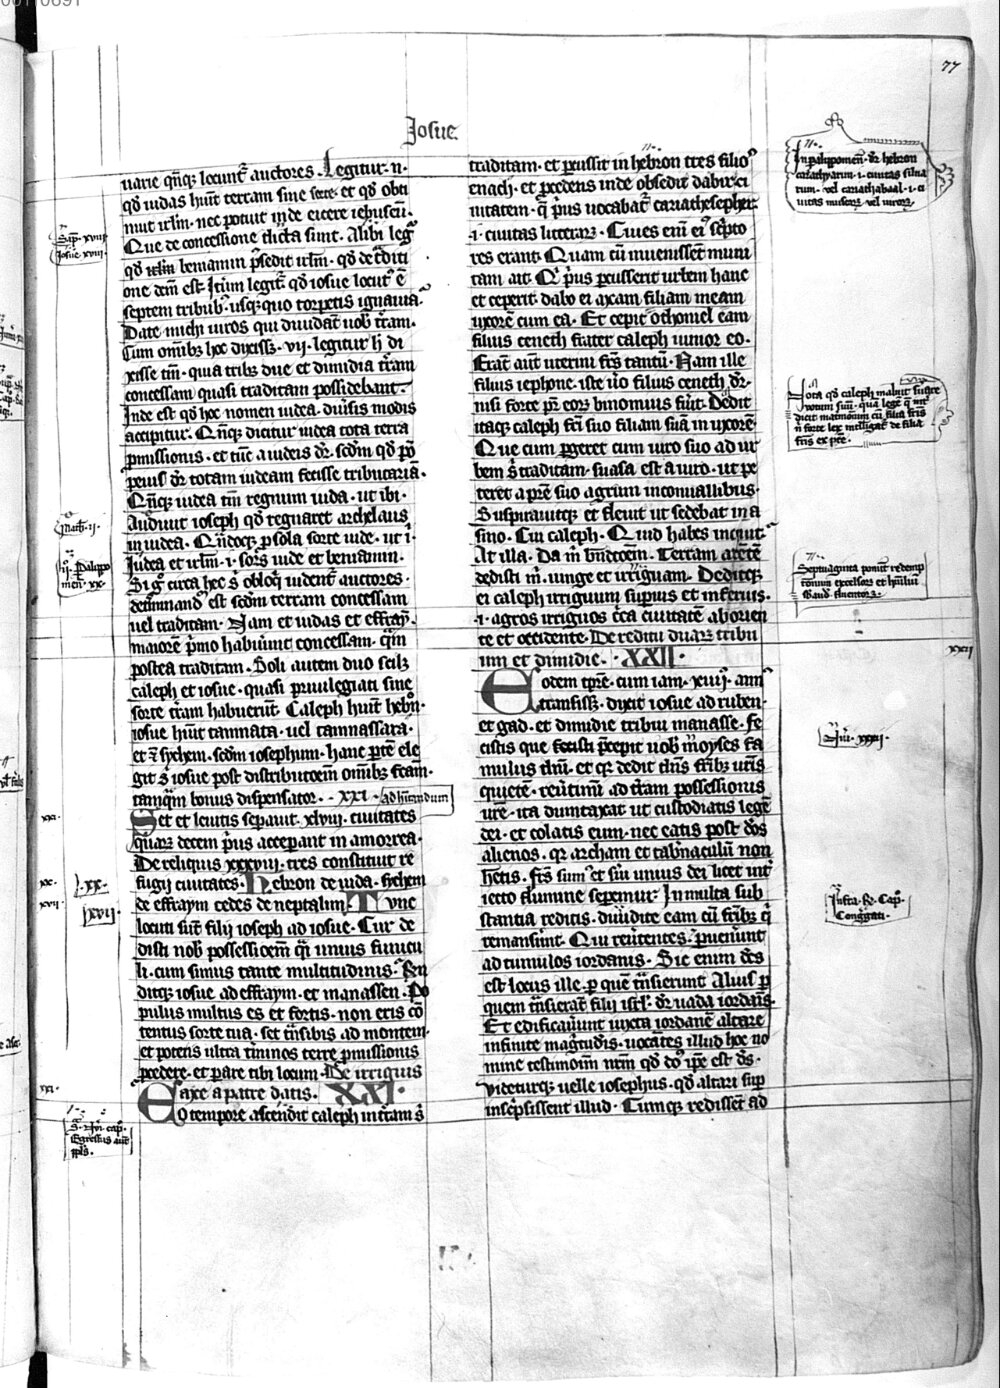 77
Josue.
uarie qnq; locunt᷑ auctores. Legitur .n.
qd iudas huit terram sine sorte. et qd obti
nuit irlm. nec potuit inde eicere iebuseū.
Que de concessione dicta sunt. Alibi leg᷑
qd irlm beniamin p̄sedit irlm. qd de t̄diti
one dcm̄ est. Itūm legit᷑ qd iosue locut᷑ ē
septem tribub᷑. usq;quo torpetis ignauia.
Date michi uiros qui diuidāt uob t̄ram.
Cum omīb; hoc dixiss;. vii. legitur h̄ di
xisse tm̄. quia trib; due et dimidia t̄ram
concessam quasi traditam possidebant.
Inde est qd hoc nomen iudea. diu͛sis modis
accipitur. Qn̄q; dicitur iudea tota terra
p̄missionis. et tūc a iudeis dr̄. scdm qd po᷑
peius dr̄ totam iudeam fecisse tributariā.
Qn̄q; iudea tm̄ regnum iuda. ut ibi.
Audiuit ioseph qd regnaret archelaus
in iudea. Qn̄doq; p sola sorte iude. ut i.
Iudea et irlm .i. sors iude et beniamin.
Si q᷑ circa hec s̄ obloq̄ uident᷑ auctores.
det͛minand᷑ est scdm terram concessam
uel traditam. Nam et iudas et effray᷑.
maiorē p̄mo habuerunt concessam. q̄m
postea traditam. Soli autem duo scil;
caleph et iosue. quasi priuilegiati sine
sorte t̄ram habuerūt. Caleph huit hebr᷑.
iosue huit tamnata. uel tamnassara.
et ī sychem. scdm iosephum. hanc p̄tē ele
git s᷑ iosue post distributōem omīb; fc̄am.
tamq̄m bonus dispensator. .XXI. ad hūndum
Set et leuitis sepauit. xlviii. ciuitates
quar; decem p̄us acceperant in amorrea.
De reliquis xxxviii. tres constituit re
fugij ciuitates. Hebron de iuda. sychem
de effraym. cedes de neptalim. Tunc
locuti sūt filij ioseph ad iosue. Cur de
disti nob possessōem q̄i unius funicu
li. cum simus tante multitudinis. Rn̄
ditq; iosue ad effraym. et manassen. Po
pulus multus es et fortis. non eris cō
tentus sorte tua. set t̄nsibis ad montem.
et poteris ultra t͛minos terre p̄missionis
p̄cedere. et parare tibi locum. De irriguis
axe a patre datis. XXI.
Eo tempore ascendit caleph in t̄ram s᷑
traditam. et p͛cussit in hebron tres filio᷑
enach. et p̄cedens inde obsedit dabir ci
uitatem. q̄ p̄us uocabat᷑ cariathsepher.
.i. ciuitas litterar;. Ciues eni͂ ei᷑ sc͛pto
res erant. Quam cū inuenissent muni
tam ait. Q͛ p̄us peusserit urbem hanc
et ceperit. dabo ei axam filiam meam
uxorē cum ea. Et cepit othoniel eam
filius ceneth frater caleph iunior eo.
Erāt aūt uterini frs̄ tantū. Nam ille
filius iephone. iste u͛o filius ceneth dr̄.
nisi forte pr̄ eor; binomius fuit. Dedit
itaq; caleph fr̄i suo filiam suā in uxorē.
Que cum p͛geret cum uiro suo ad ur
bem s᷑ traditam. suasa est a uiro. ut pe
teret a pr̄e suo agrum in conuallibus.
Suspirauitq; et fleuit ut sedebat in a
sino. Cui caleph. Quid habes inquit.
At illa. Da m̄ bn̄dictōem. Terram arētē
dedisti m̄. iunge et irriguam. Deditq;
ei caleph irriguum sup͛ius et inferius.
.i. agros irriguos c͛ca ciuitatē ab orien
te et occidente. De reditu duar; tribu
um et dimidie. .XXII.
Eodem tp̄re. cum iam. xiiij. ann᷑
transiss;. dixit iosue ad ruben.
et gad. et dimidie tribui manasse. Fe
cistis que fecisti p̄cepit uob moyses fa
mulus dn̄i. et q͛ dedit dn̄s frīb; ur̄is
quietē. reu͛timini ad t̄ram possessionis
ur̄e. ita dumtaxat ut custodiatis legē
dei. et colatis eum. nec eatis post d͛os
alienos. q͛ archam et tab͛naculū non
h̄etis. frs̄ sum᷑ et s͛ui unius dei licet int͛
iecto flumine sepemur. In multa sub
stantia redicis. diuidite eam cū frīb; q̄
remanserunt. Qui reu͛tentes. p͛uen͛unt
ad tumulos iordanis. Sic enim d͛cs
est locus ille. p quē t̄nsierunt. Alius p
quem t̄nsierat filij isrl᷑. dr̄ uada iordanis.
Et edificau͛unt iuxta iordanē altare
infinite magnitudis. uocātes illud hoc no
mine testimoniū nr̄m qd do᷑ ip̄e est d͛s.
Videturq; uelle iosephus. qd altari sup͛
insc͛psissent illud. Cumq; redissēt ad
Sup͛. xviii.
Josue. xviii.
Math. ii.
ii. Palipo
menon. xx.
xxi.
xx.
.XX.
xvii.
xvii
xxi.
S᷑. Jūi. cap᷑.
Egressus aūt
pls̄.
In palipomen᷑. dr̄ hebron
cariatharim .i. ciuitas silua
rum. uel cariathabaal .i. ci
uitas muscar; uel uiror;.
Nota qd caleph maluit frangere
uotum suū. quā legē q̄ int͛
dicit matrimoniū cū filia fr̄is
n͛ forte lex intelligat᷑ de filia
fr̄is ex pr̄e.
Septuaginta ponūt redemp
tionum excelsor; et humiliū
.i. fluentor;.
xxii
Nūi. xxxii.
Infra. Re. Cap᷑.
Congregati.